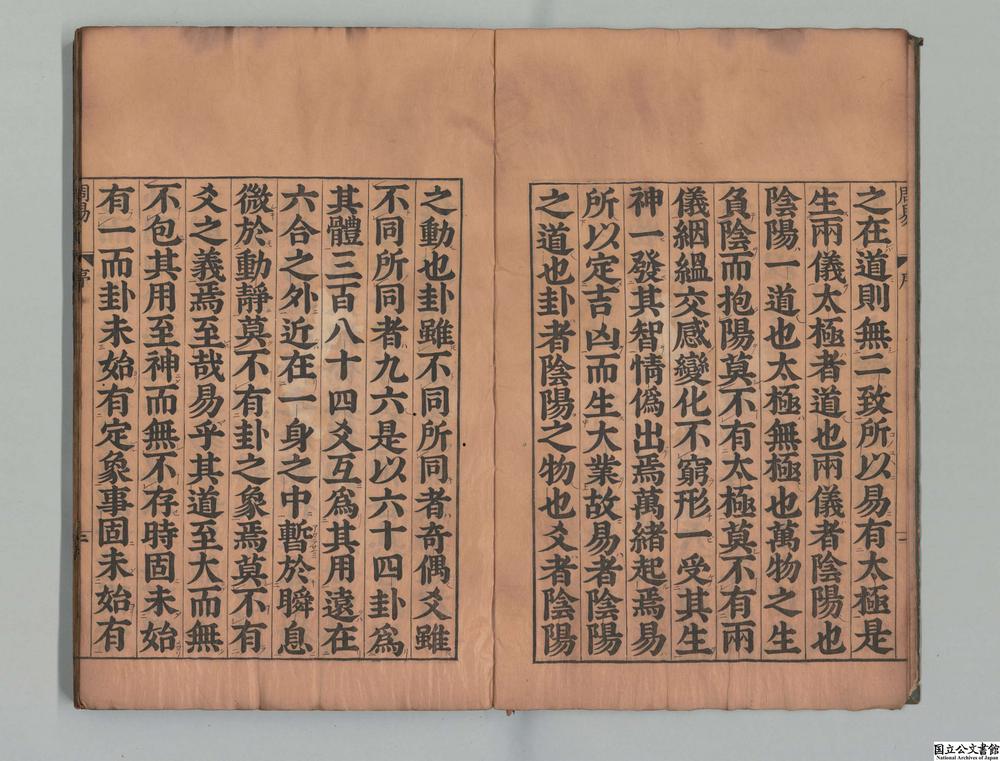 之在道則無二致所以易有太極是
生兩儀太極者道也兩儀者陰陽也
陰陽一道也太極無極也萬物之生
負陰而抱陽莫不有太極莫不有兩
儀絪縕交感變化不窮形一受其生
神一發其智情僞出焉萬緒起焉易
所以定吉凶而生大業故易者陰陽
之道也卦者陰陽之物也爻者陰陽
之動也卦雖不同所同者奇偶爻雖
不同所同者九六是以六十四卦爲
其體三百八十四爻互爲其用遠在
六合之外近在一身之中暫於瞬息
微於動靜莫不有卦之象焉莫不有
爻之義焉至哉易乎其道至大而無
不包其用至神而無不存時固未始
有一而卦未始有定象事固未始有
国立公文書館
National Archives of Japan